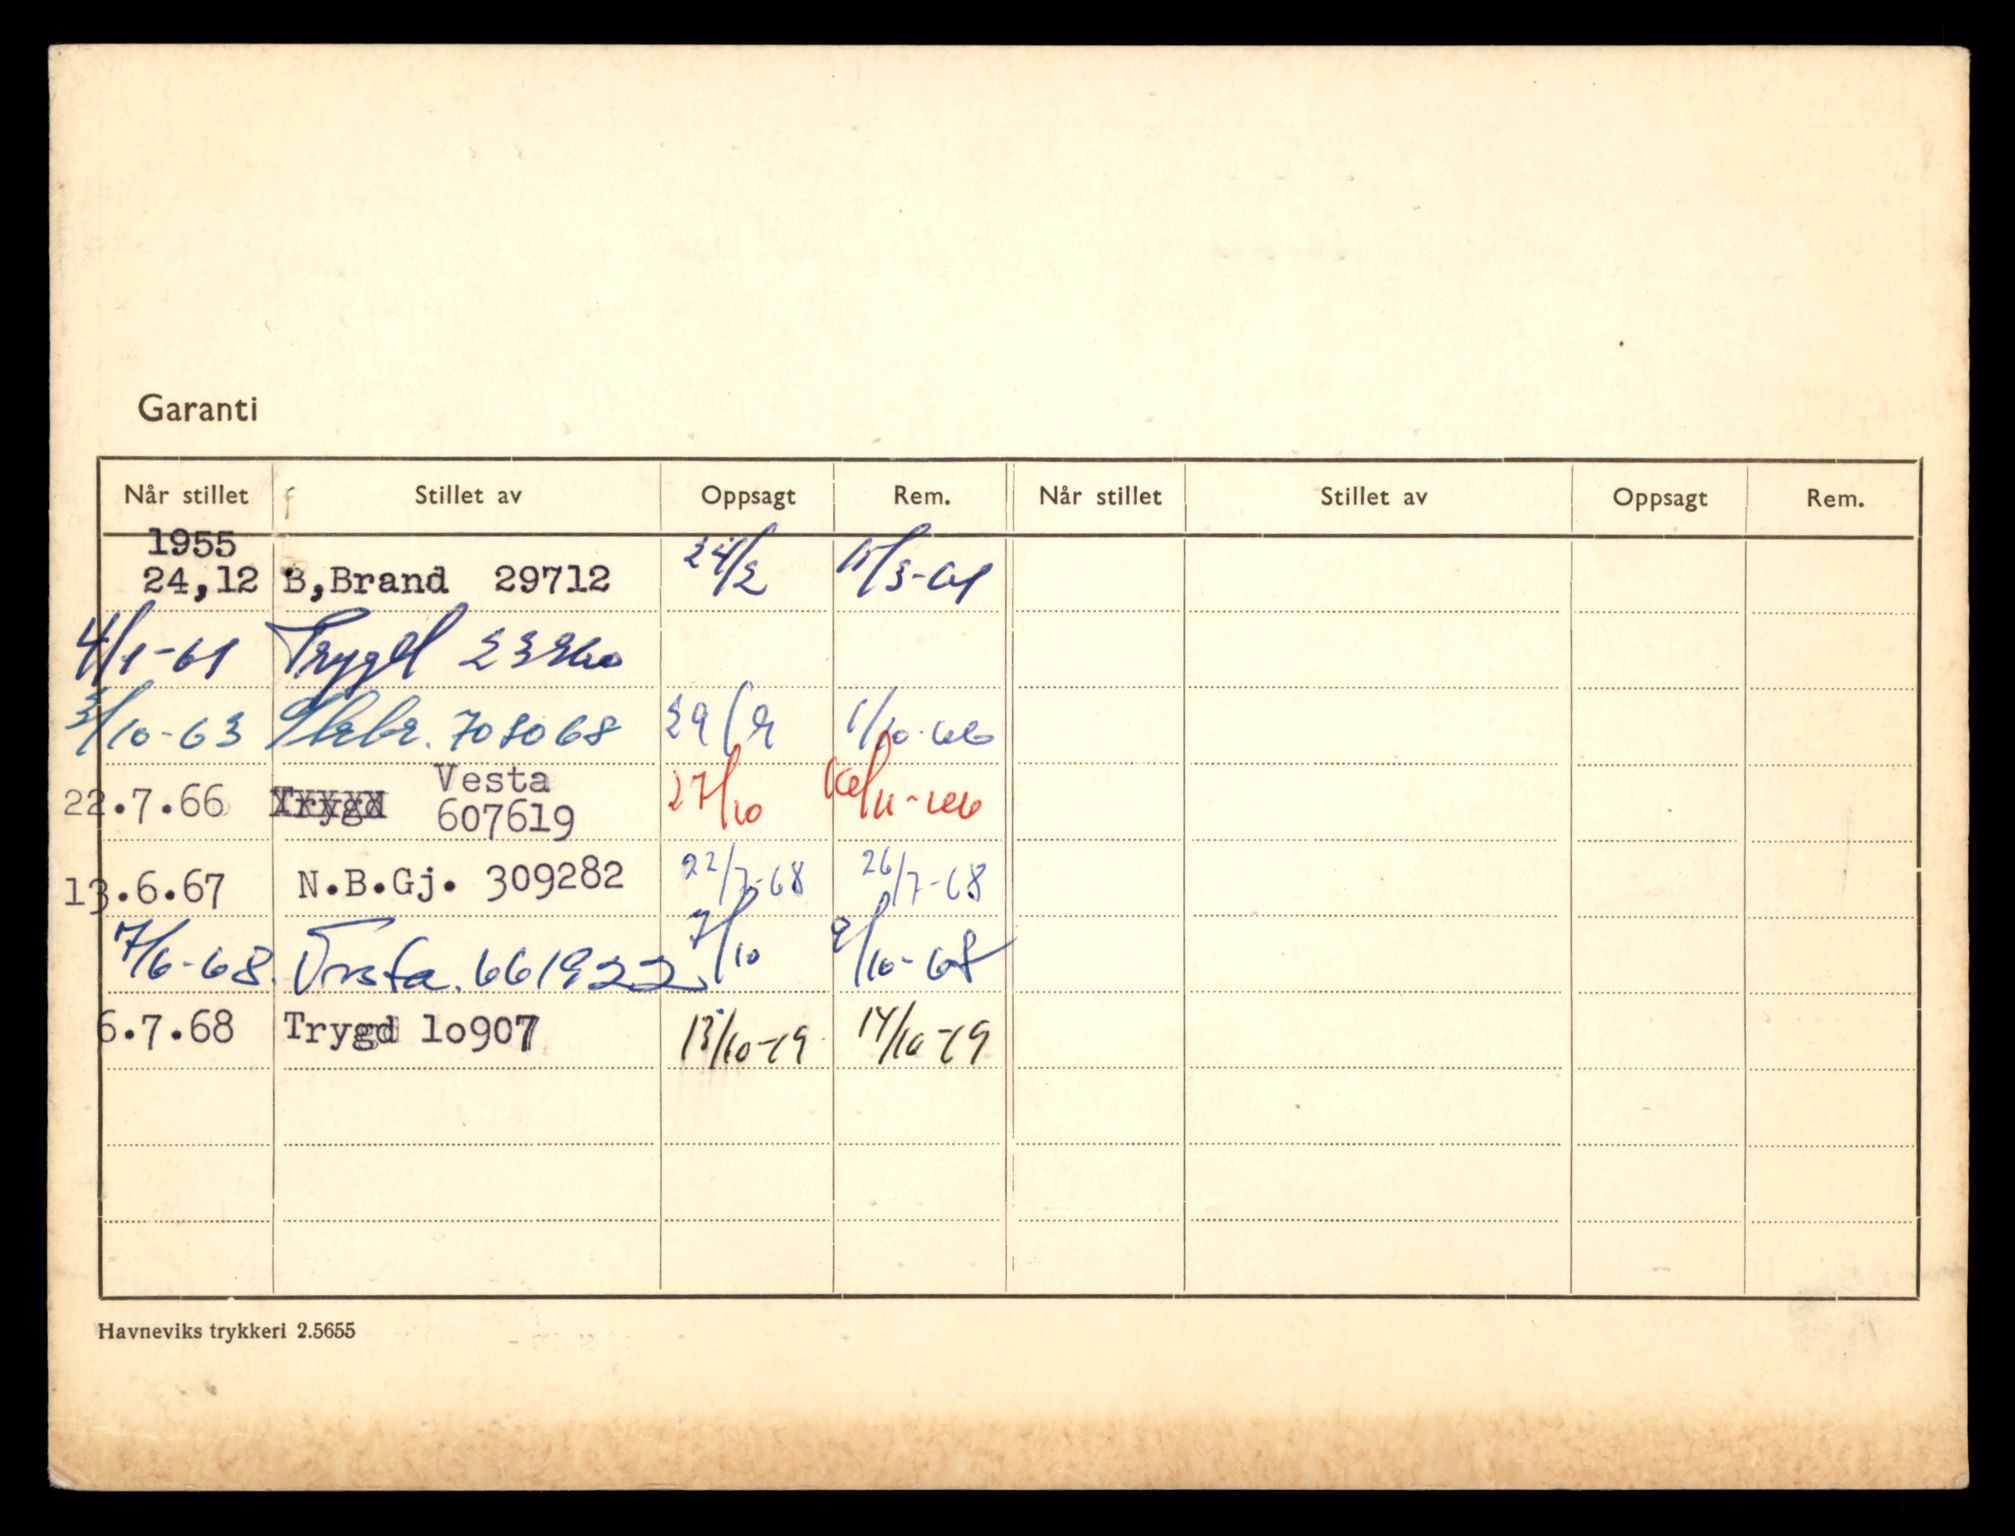 Garanti
Når stillet Stillet av Oppsagt Rem. Når stillet Stillet av Oppsagt Rem.
1955
24,12 B,Brand 29712 24/2 11/3-61
4/1-61 Trygd
3/10-63 708068 29/9 1/10-66
Vesta
22.7.66 Trygd 607619 27/10 /11-66
13.6.67 N.B.Gj. 309282 22/7-68 26/7-68
7/6-68. Vesta. 661922 7/10 9/10-68
6.7.68 Trygd 10907 13/10-69 14/10-69
Havneviks trykkeri 2.5655